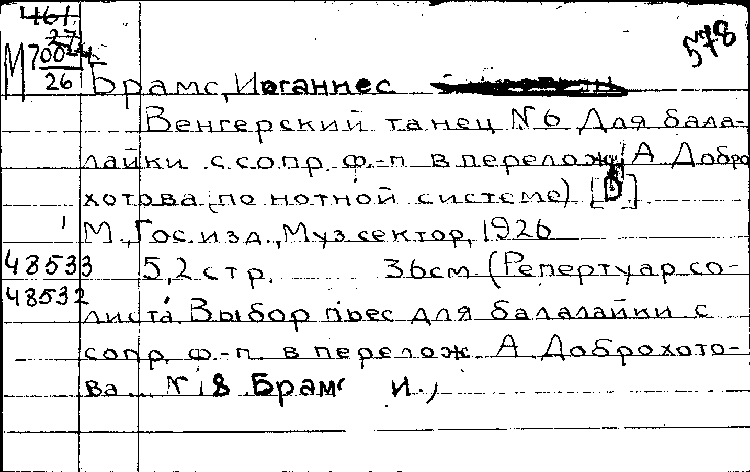 461
27
578
М 700
26
Брамс, Иоганнес
Венгерский танец №6 Для бала-
лайки с сопр. ф.-п. в перелож. А Добро
хотова (по нотной системе) [D]
М., Гос. изд., Муз сектор, 1926
48533 5,2 стр. 36см (Репертуар со-
48532 листа. Выбор пьес для балалайки с
сопр. ф.-п. в перелож. А Доброхото-
ва. №18 Брамс И.,